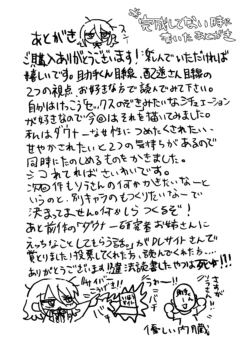 ※完成してない時に
書いたあとがき
あとがき
ご購入ありがとうございます!楽しんでいただければ
嬉しいです。助手くん目線、配達さん目線の
2つの視点、お好きな方で読んでみて下さい。
自分はけっこうセックスのぞきみたいなシチュエーション
が好きなので今回はそれを描いてみました。
私はダウナーな女性につめたくされたい・
甘やかされたいと2つの気持ちがあるので
同時にたのしめるものをかきました。
シコれてればさいわいです。
次回作もリうさんの何かかきたいなーと
いうのと、別キャラのもつくりたいなーで
決まってません。何かしらつくるぞ!
あと前作の「ダウナー研究者お姉さんに
えっちなことしてもらう話。」がDLサイトさんで
賞とりました!投票してくれた方、読んでくれた方…
ありがとうございます!!違法読者したやつは死ゆ!!!
優しい内臓